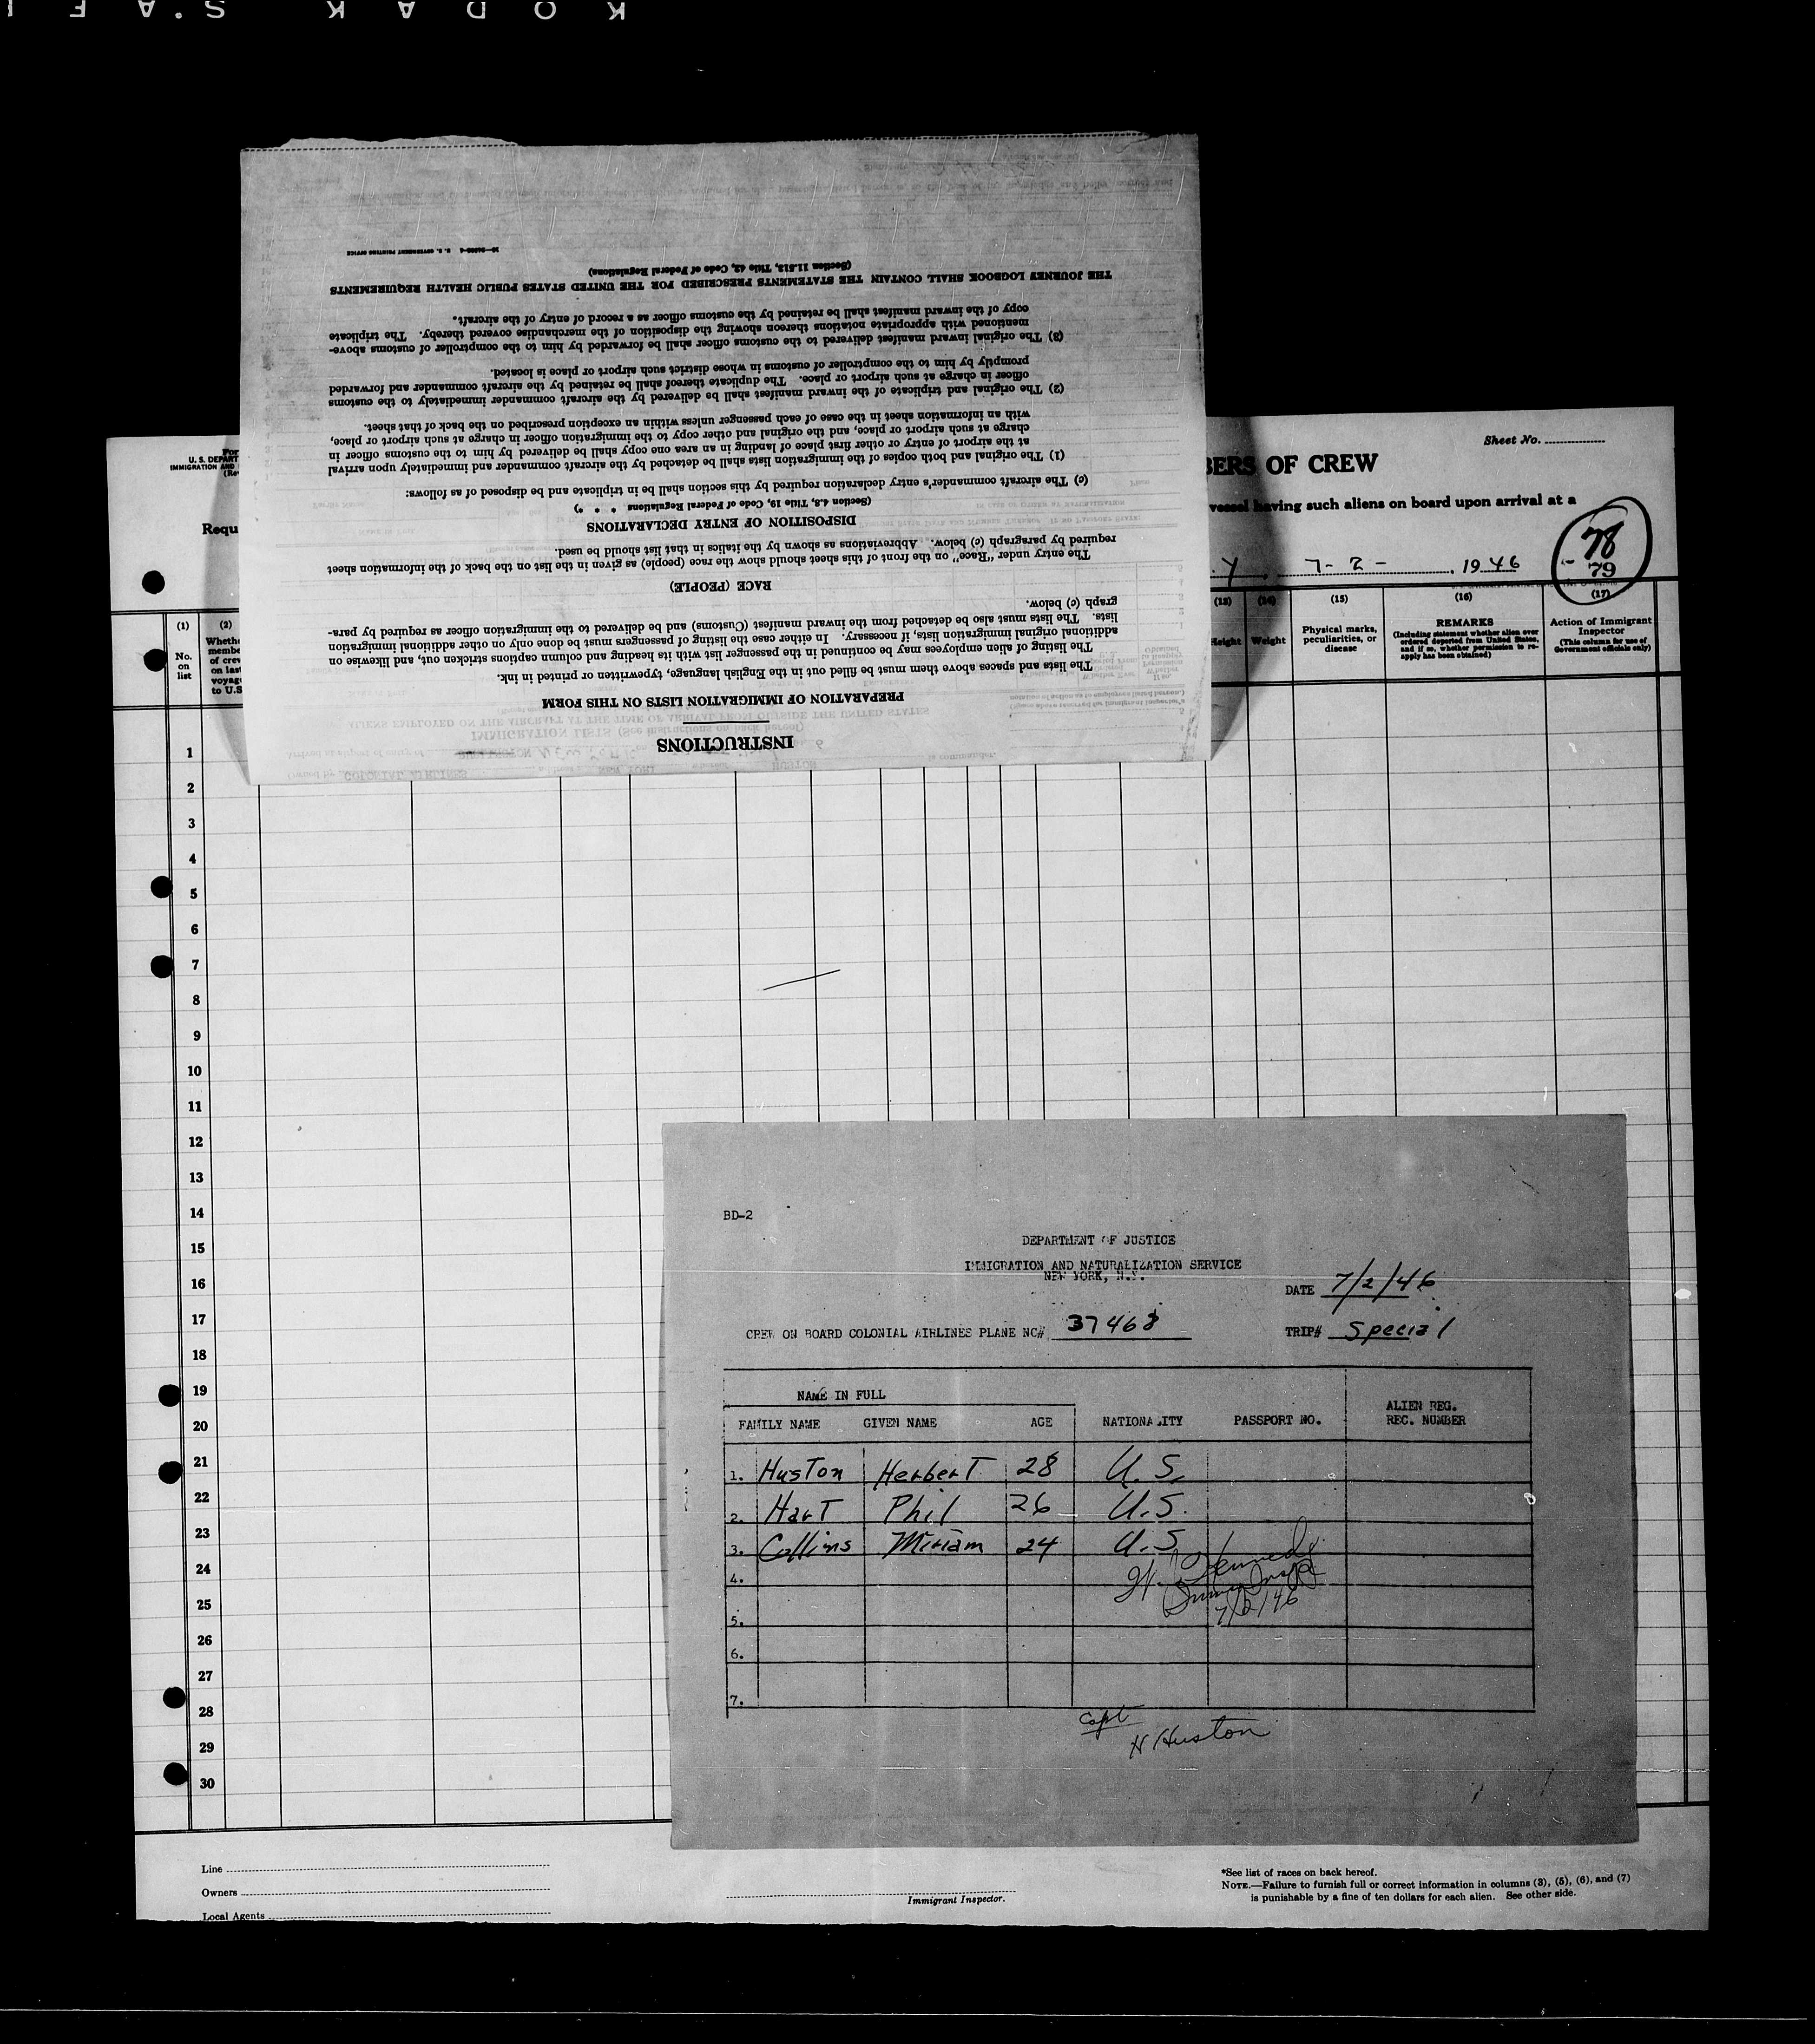 KODAK S.AFE
Sheet No.
BERS OF CREW
vessel having such aliens on board upon arrival at a
U. S. DEPART
IMMIGRATION AND
Requ
Y. 7-2- , 1946
78
- 79
(1) (2) (13) (14) (15) (16) (17)
No. on list
Wheth
membe
of crew
on last
voyag
to U.S
Height Weight
Physical marks, peculiarities, or disease
REMARKS
(Including statement whether alien ever ordered deported from United States, and if so, whether permission to reapply has been obtained)
Action of Immigrant Inspector
(This column for use of Government officials only)
INSTRUCTIONS
PREPARATION OF IMMIGRATION LISTS ON THIS FORM
The lists and spaces above them must be filled out in the English language, typewritten or printed in ink.
The listing of alien employees may be continued in the passenger list with its heading and column captions stricken out, and likewise on
additional original immigration lists, if necessary. In either case the listing of passengers must be done only on other additional immigration
lists. The lists must also be detached from the inward manifest (Customs) and be delivered to the immigration officer as required by para-
graph (c) below.
RACE (PEOPLE)
The entry under "Race" on the front of this sheet should show the race (people) as given in the list on the back of the information sheet
required by paragraph (c) below. Abbreviations as shown by the italics in that list should be used.
DISPOSITION OF ENTRY DECLARATIONS
(Section 4.8, Title 19, Code of Federal Regulations * * *)
(c) The aircraft commander's entry declaration required by this section shall be in triplicate and be disposed of as follows:
(1) The original and both copies of the immigration lists shall be detached by the aircraft commander and immediately upon arrival
at the airport of entry or other first place of landing in an area one copy shall be delivered by him to the customs officer in
charge at such airport or place, and the original and other copy to the immigration officer in charge at such airport or place,
with an information sheet in the case of each passenger unless within an exception prescribed on the back of that sheet.
(2) The original and triplicate of the inward manifest shall be delivered by the aircraft commander immediately to the customs
officer in charge at such airport or place. The duplicate thereof shall be retained by the aircraft commander and forwarded
promptly by him to the comptroller of customs in whose district such airport or place is located.
(3) The original inward manifest delivered to the customs officer shall be forwarded by him to the comptroller of customs above-
mentioned with appropriate notations thereon showing the disposition of the merchandise covered thereby. The triplicate
copy of the inward manifest shall be retained by the customs officer as a record of entry of the aircraft.
THE JOURNEY LOGBOOK SHALL CONTAIN THE STATEMENTS PRESCRIBED FOR THE UNITED STATES PUBLIC HEALTH REQUIREMENTS
(Section 11.513, Title 42, Code of Federal Regulations)
U. S. GOVERNMENT PRINTING OFFICE
1
2
3
4
5
6
7
8
9
10
11
12
13
14
15
16
17
18
19
20
21
22
23
24
25
26
27
28
29
30
BD-2
DEPARTMENT OF JUSTICE
IMMIGRATION AND NATURALIZATION SERVICE
NEW YORK, N.Y.
DATE 7/2/46
CREW ON BOARD COLONIAL AIRLINES PLANE NC# 37468 TRIP# Special
NAME IN FULL
FAMILY NAME GIVEN NAME AGE NATIONALITY PASSPORT NO. ALIEN REG. REC. NUMBER
1. Huston Herbert 28 U.S.
2. Hart Phil 26 U.S.
3. Collins Miriam 24 U.S.
4.
7/2/46
5.
6.
7.
Capt
H Huston
Line
Owners
Local Agents
Immigrant Inspector.
*See list of races on back hereof.
NOTE.—Failure to furnish full or correct information in columns (3), (5), (6), and (7)
is punishable by a fine of ten dollars for each alien. See other side.